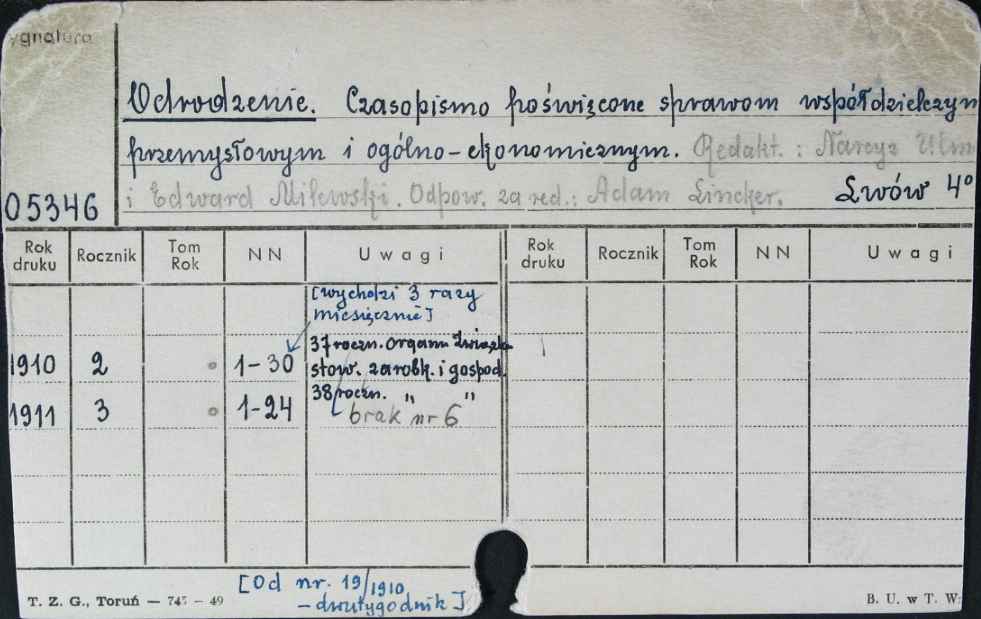 ygnatura
Odrodzenie. Czasopismo poświęcone sprawom współdzielczym
przemysłowym i ogólno-ekonomicznym. Redakt.: Narcyz Ulm
05346 i Edward Milewski. Odpow. za red.: Adam Lincker. Lwów 4°
Rok druku Rocznik Tom Rok NN Uwagi Rok druku Rocznik Tom Rok NN Uwagi
[wychodzi 3 razy
miesięcznie]
37 roczn. Organu Związk.
1910 2 1-30 stow. zarobk. i gospod.
38 roczn. " "
1911 3 1-24 brak nr 6
[Od nr. 19/1910
- dwutygodnik]
T. Z. G., Toruń — 745 — 49 B. U. w T. W.